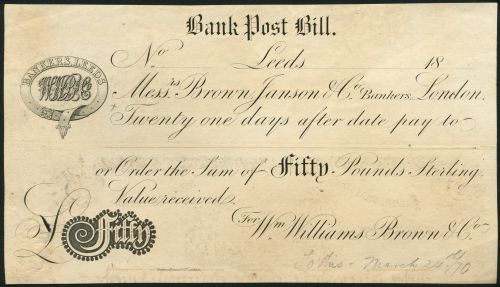 Bank Post Bill.
No Leeds 18
BANKERS, LEEDS
Messrs Brown, Janson & Co. Bankers, London.
Twenty one days after date pay to
or Order the Sum of Fifty Pounds Sterling
Value received.
£ Fifty
For Wm Williams Brown & Co
March 24th/70